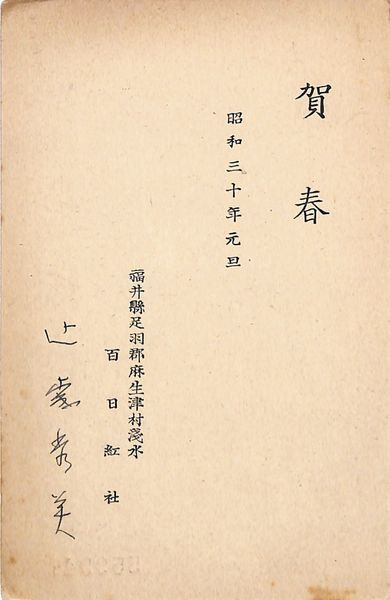 賀春
昭和三十年元旦
福井縣足羽郡麻生津村淺水
百日紅社